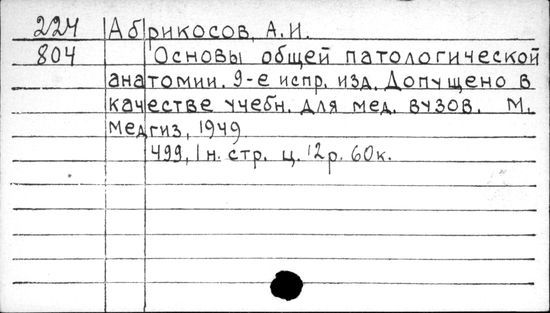 224 Абрикосов, А.И.
804 Основы общей патологической
анатомии. 9-е испр. изд. Допущено в
качестве учебн. для мед. вузов. М.
Медгиз, 1949
499, 1 н. стр. ц. 12р. 60к.